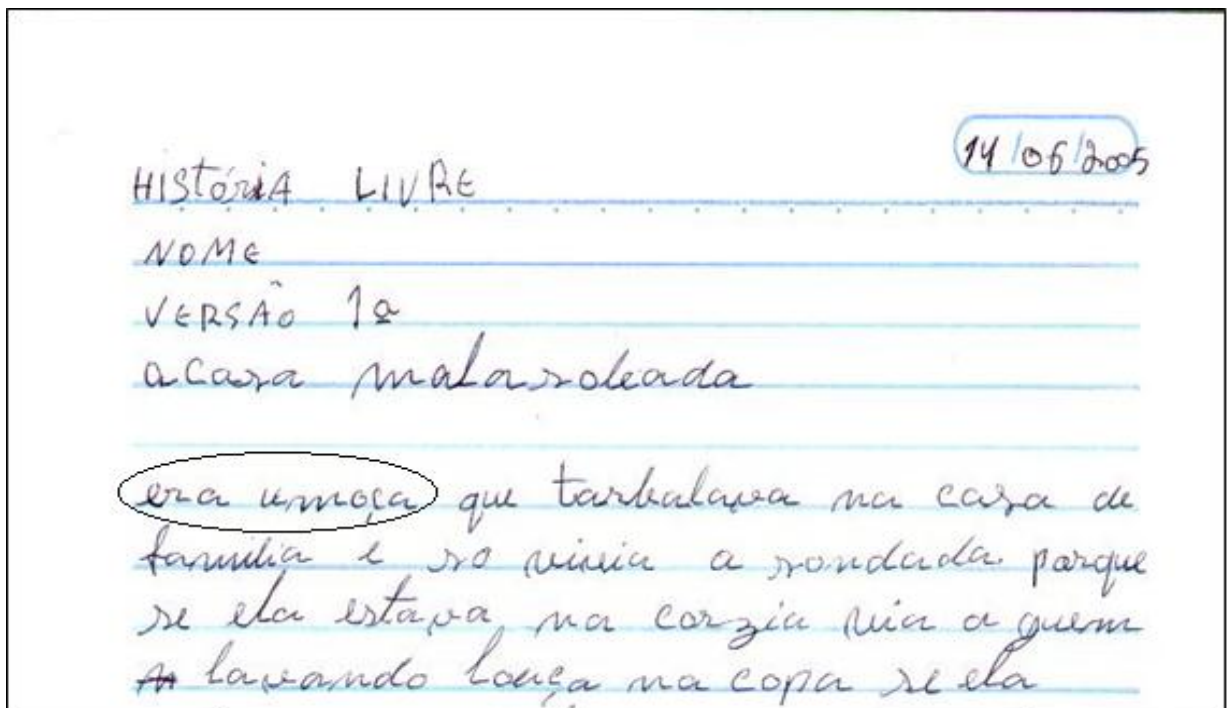 14/06/2005
HIStóriA LIVRE
NOME
VERSÃO 1ª
acasa malasoleada
era umoça que tarbalava na casa de
familia e so vivia a sondada porque
se ela estava na corzia via a guem
lavando louça na copa se ela